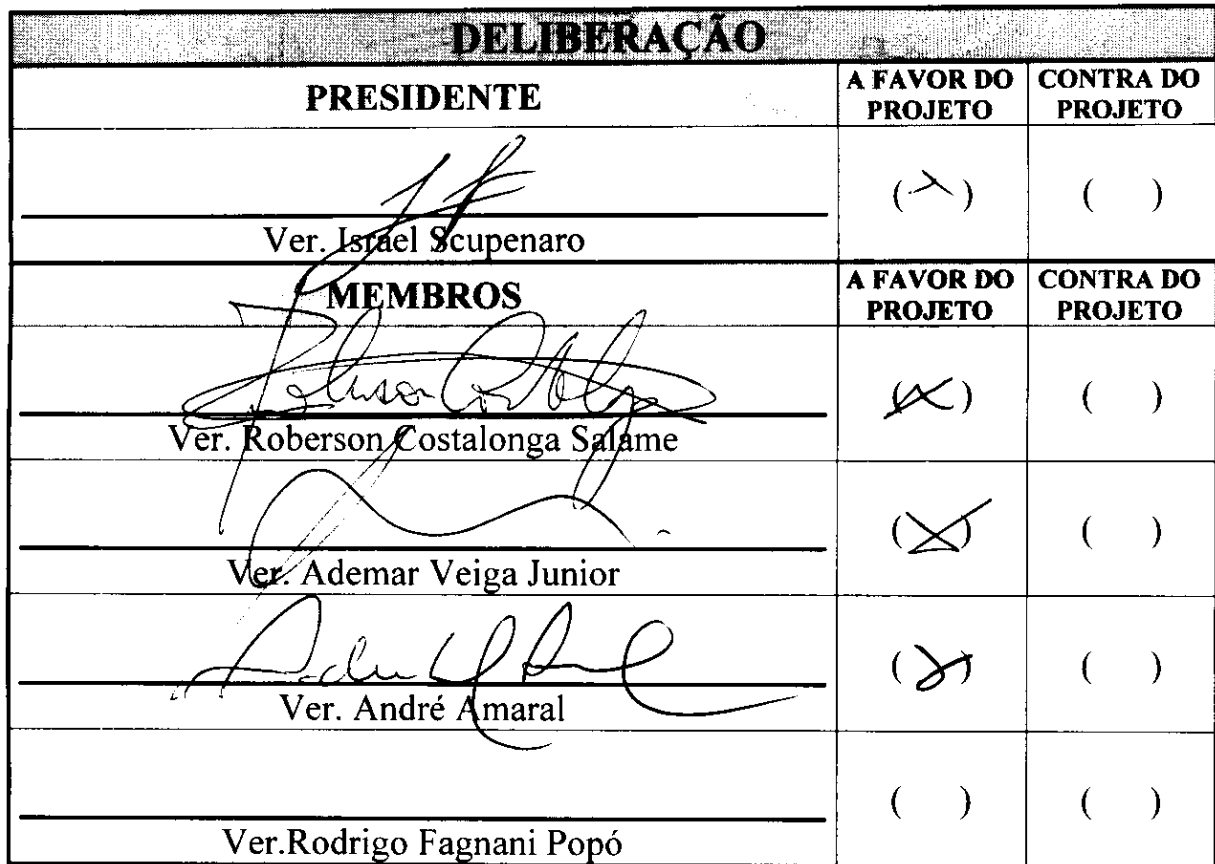 DELIBERAÇÃO
PRESIDENTE
A FAVOR DO PROJETO
CONTRA DO PROJETO
( )
( )
Ver. Israel Scupenaro
MEMBROS
A FAVOR DO PROJETO
CONTRA DO PROJETO
(X)
( )
Ver. Roberson Costalonga Salame
(X)
( )
Ver. Ademar Veiga Junior
(X)
( )
Ver. André Amaral
( )
( )
Ver.Rodrigo Fagnani Popó